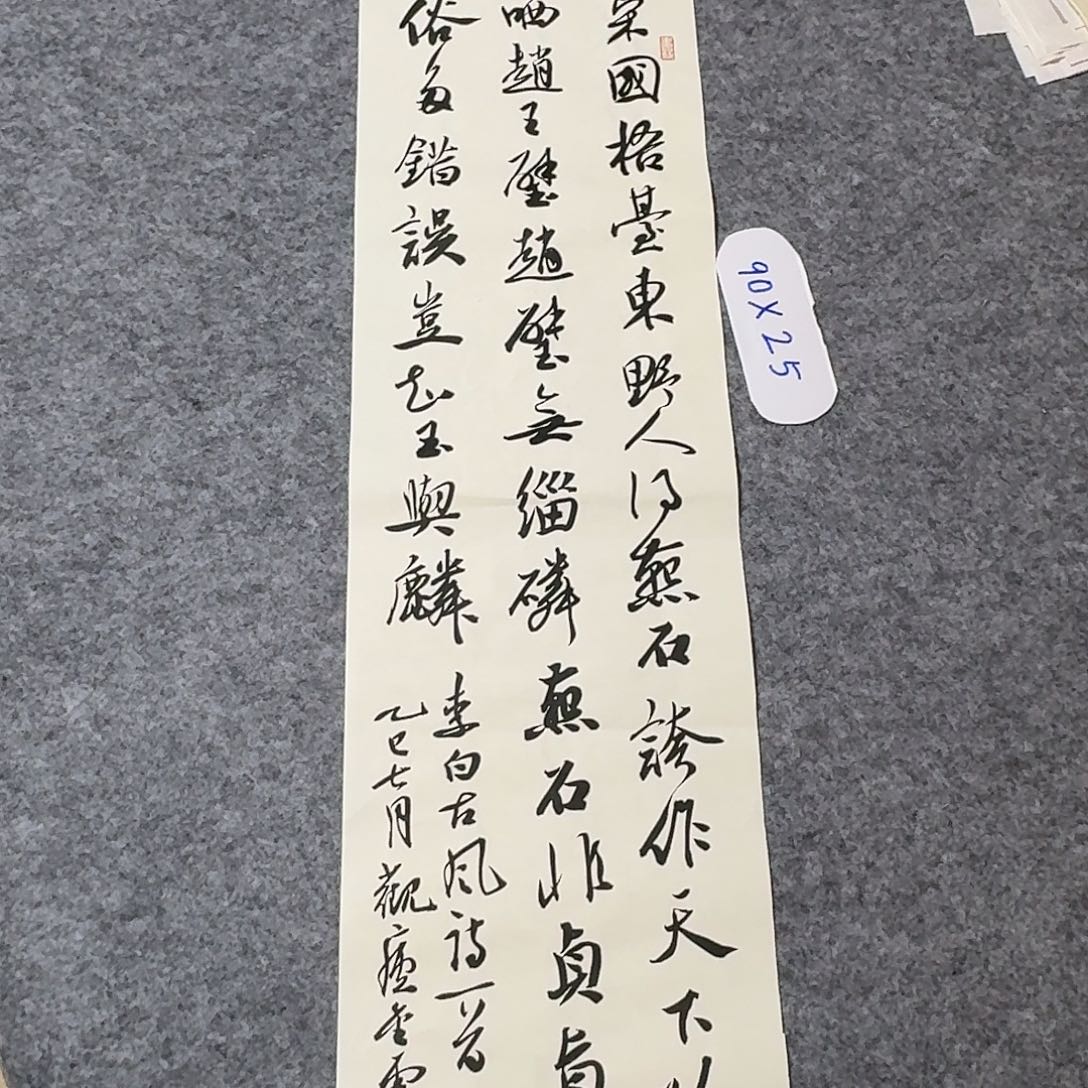 宋國梧臺東野人得燕石誇作天下
哂趙王璧趙璧無緇磷燕石非貞
俗多錯誤豈知玉與麟
李白古風詩一首
乙巳七月觀
90X25